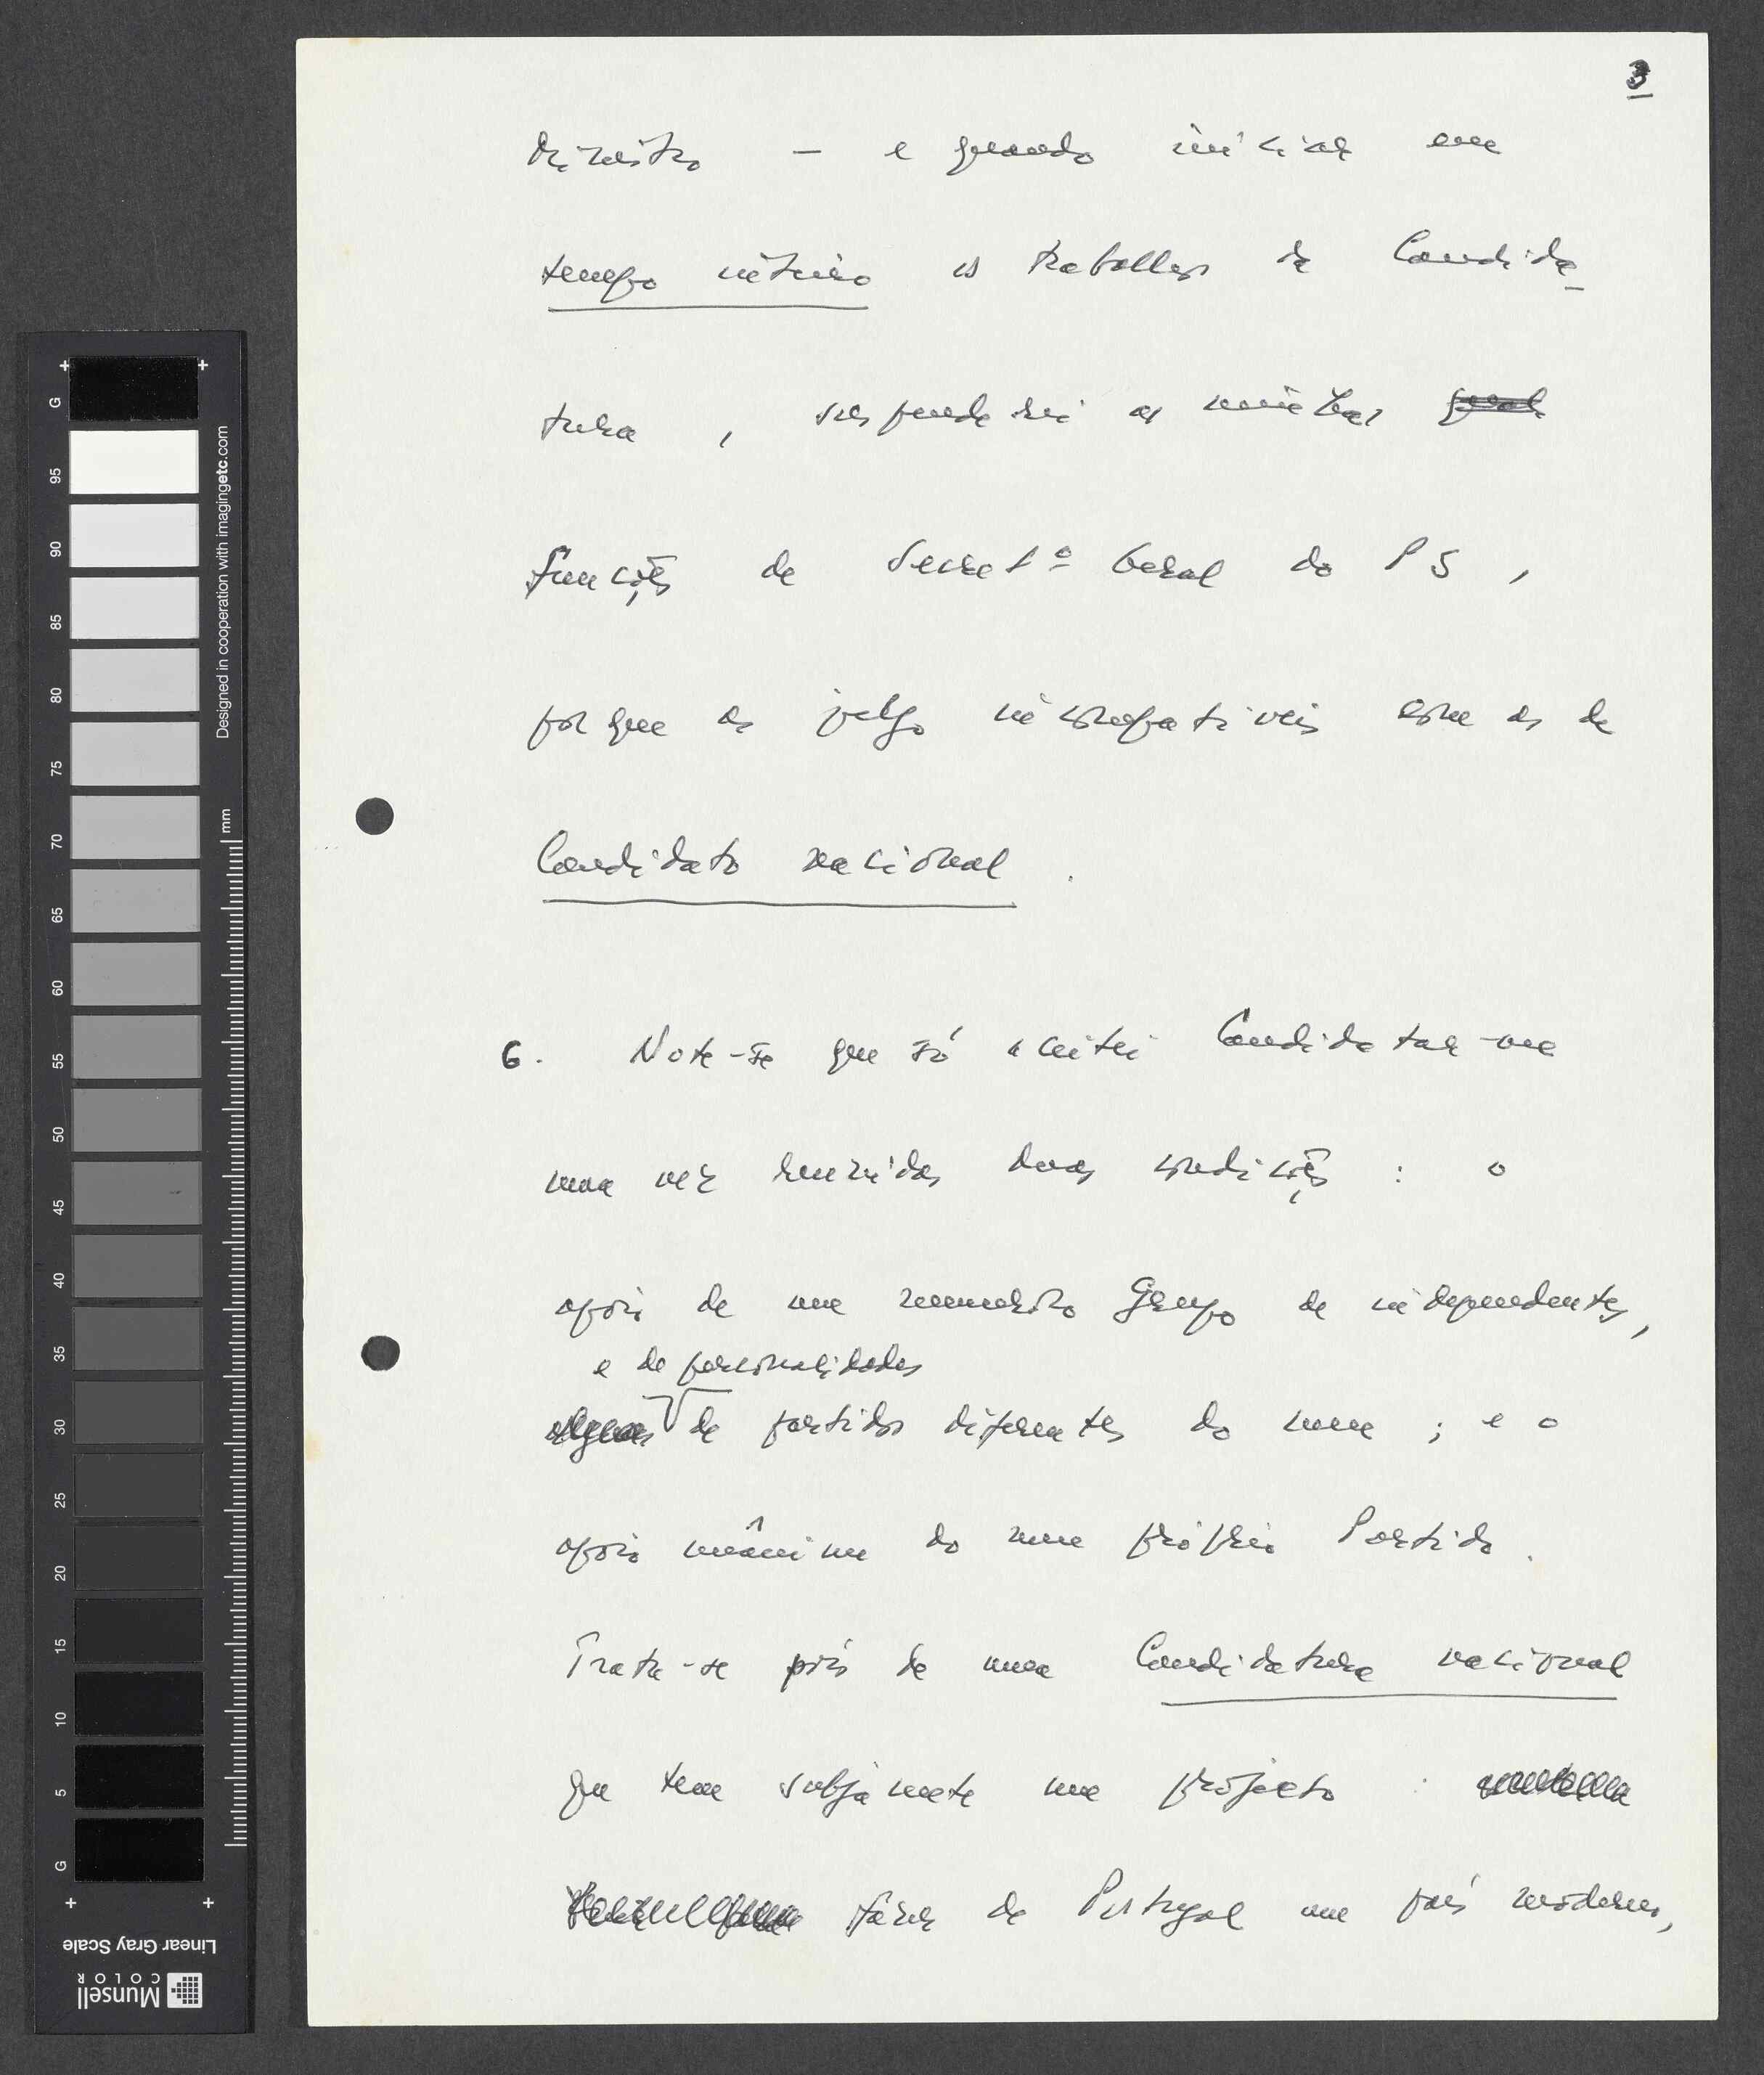 3
Ministro — e quando iniciar em
tempo inteiro os trabalhos da Candida-
tura, suspenderei as minhas
funções de Secretº Geral do PS,
porque as julgo incompatíveis com as de
Candidato nacional.
6. Note-se que só aceitei Candidatar-me
uma vez reunidas duas condições: o
apoio de um numeroso Grupo de independentes,
e de personalidades
de partidos diferentes do meu; e o
apoio unânime do meu próprio Partido.
Trata-se pois de uma Candidatura nacional
que tem subjacente um projecto:
fazer de Portugal um país moderno,
G
95
90
85
80
75
70
65
60
55
50
45
40
35
30
25
20
15
10
5
G
mm
Designed in cooperation with imagingetc.com
Linear Gray Scale
Munsell
COLOR